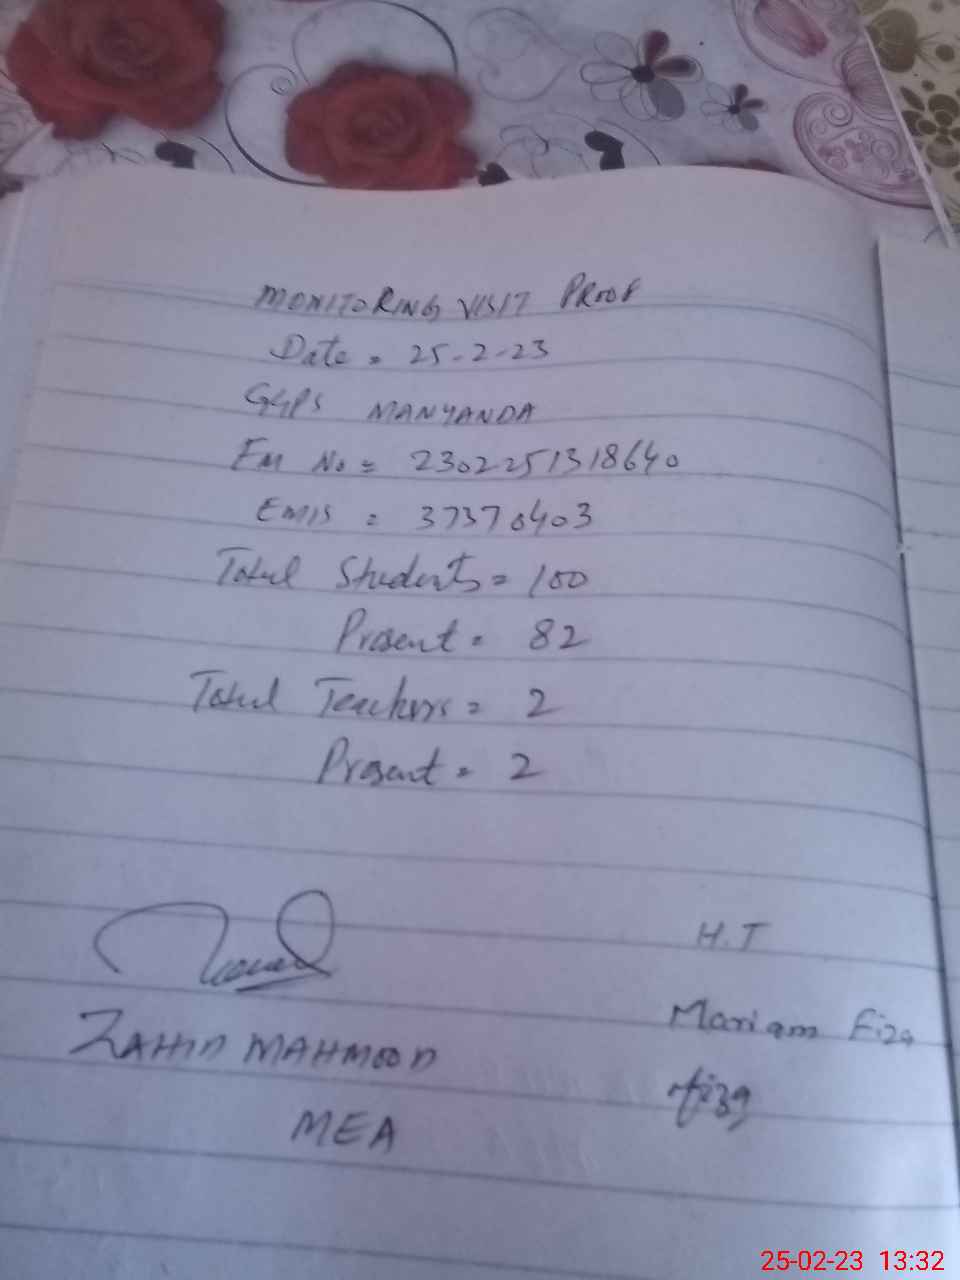 MONITORING VISIT PROOF
Date = 25-2-23
GGPS MANYANDA
Em No = 2302251318640
EMIS = 37370403
Total Students = 100
Present = 82
Total Teachers = 2
Present = 2
H.T
Mariam Fiza
ZAHID MAHMOOD
fiza
MEA
25-02-23 13:32